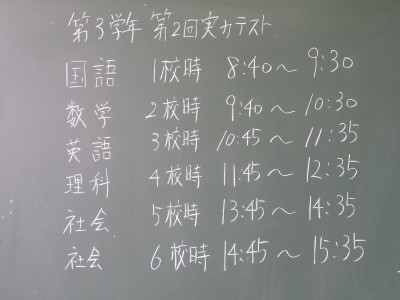 第3学年 第2回実力テスト
国語 1校時 8:40～9:30
数学 2校時 9:40～10:30
英語 3校時 10:45～11:35
理科 4校時 11:45～12:35
社会 5校時 13:45～14:35
社会 6校時 14:45～15:35